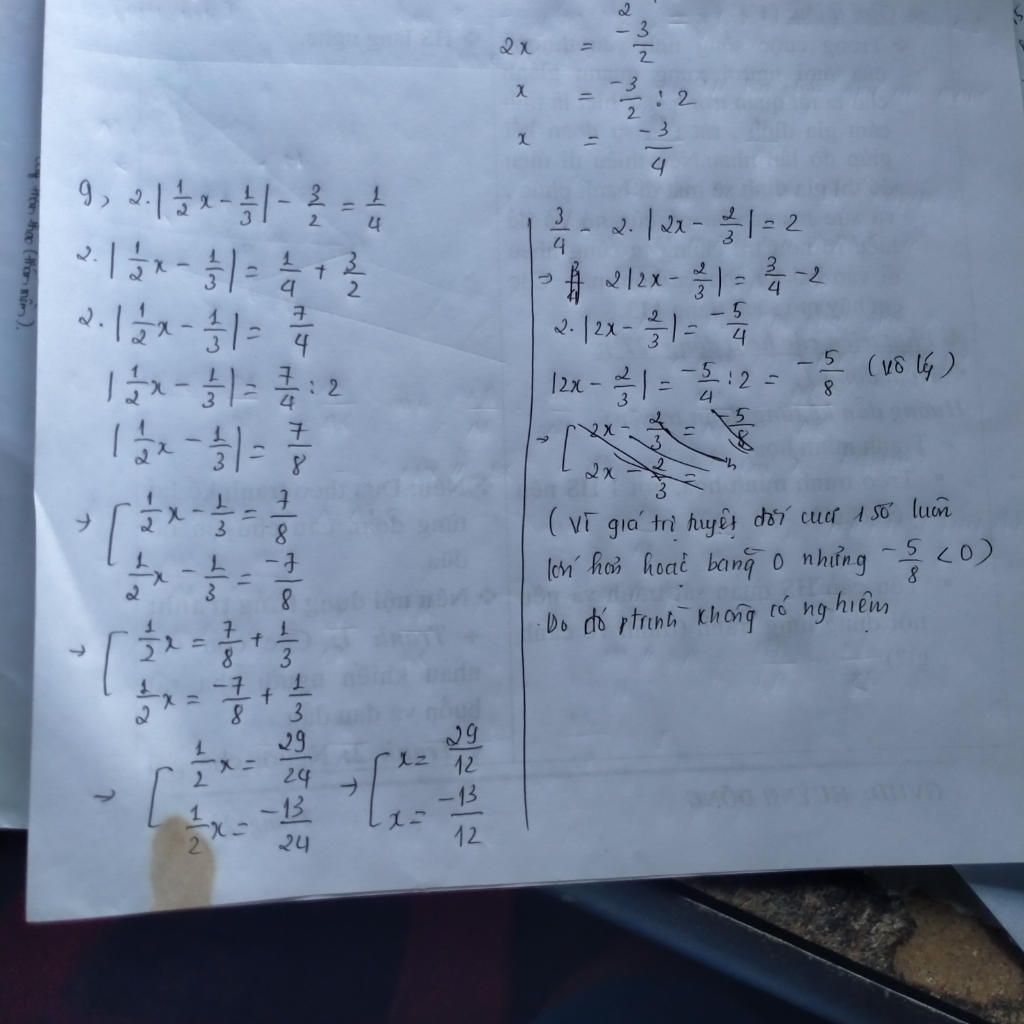 2x = -3/2
x = -3/2 : 2
x = -3/4
9, 2.|1/2x - 1/3| - 3/2 = 1/4
2.|1/2x - 1/3| = 1/4 + 3/2
2.|1/2x - 1/3| = 7/4
|1/2x - 1/3| = 7/4 : 2
|1/2x - 1/3| = 7/8
→ [ 1/2x - 1/3 = 7/8
1/2x - 1/3 = -7/8
→ [ 1/2x = 7/8 + 1/3
1/2x = -7/8 + 1/3
→ [ 1/2x = 29/24 → [ x = 29/12
1/2x = -13/24 x = -13/12
3/4 - 2.|2x - 2/3| = 2
→ 2|2x - 2/3| = 3/4 - 2
2.|2x - 2/3| = -5/4
|2x - 2/3| = -5/4 : 2 = -5/8 (vô lý)
→ [ 2x - 2/3 = -5/8
2x - 2/3 =
(vì giá trị tuyệt đối của 1 số luôn
lớn hơn hoặc bằng 0 nhưng -5/8 < 0)
Do đó ptrình không có nghiệm